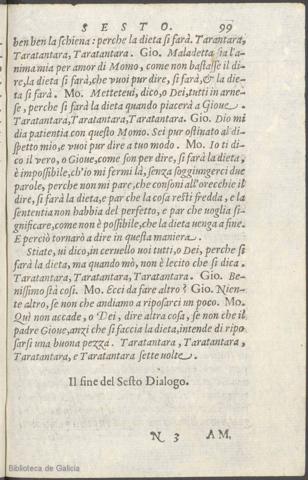 SESTO. 99
ben ben la schiena: perche la dieta si farà. Tarantara,
Taratantara, Taratantara. Gio. Maladetta sia l'a-
nima mia per amor di Momo, come non bastasse il di-
re, la dieta si farà, che vuoi pur dire, si farà, & la die-
ta si farà. Mo. Metteteui, dico, o Dei, tutti in arne-
se, perche si farà la dieta quando piacerà a Gioue.
Taratantara, Taratantara, Taratantara. Gio. Dio mi
dia patientia con questo Momo. Sei pur ostinato al di-
spetto mio, e vuoi pur dire a tuo modo. Mo. Io ti di-
co il vero, o Gioue, come son per dire, si farà la dieta,
è impossibile, ch'io mi fermi là, senza soggiungerci due
parole, perche non mi pare, che consoni all'orecchie il
dire, si farà la dieta, e par che la cosa resti fredda, e la
sententia non habbia del perfetto, e par che uoglia si-
gnificare, come non è possibile, che la dieta uenga a fine.
E perciò tornarò a dire in questa maniera.
Stiate, ui dico, in ceruello uoi tutti, o Dei, perche si
farà la dieta, ma quando mò, non è lecito che si dica.
Taratantara, Taratantara, Taratantara. Gio. Be-
nissimo stà così. Mo. Ecci da fare altro? Gio. Nien-
te altro, se non che andiamo a riposarci un poco. Mo.
Quì non accade, o Dei, dire altra cosa, se non che il
padre Gioue, anzi che si faccia la dieta, intende di ripo
sarsi una buona pezza. Taratantara, Taratantara,
Taratantara, e Taratantara sette uolte.
Il fine del Sesto Dialogo.
N 3 AM,
Biblioteca de Galicia